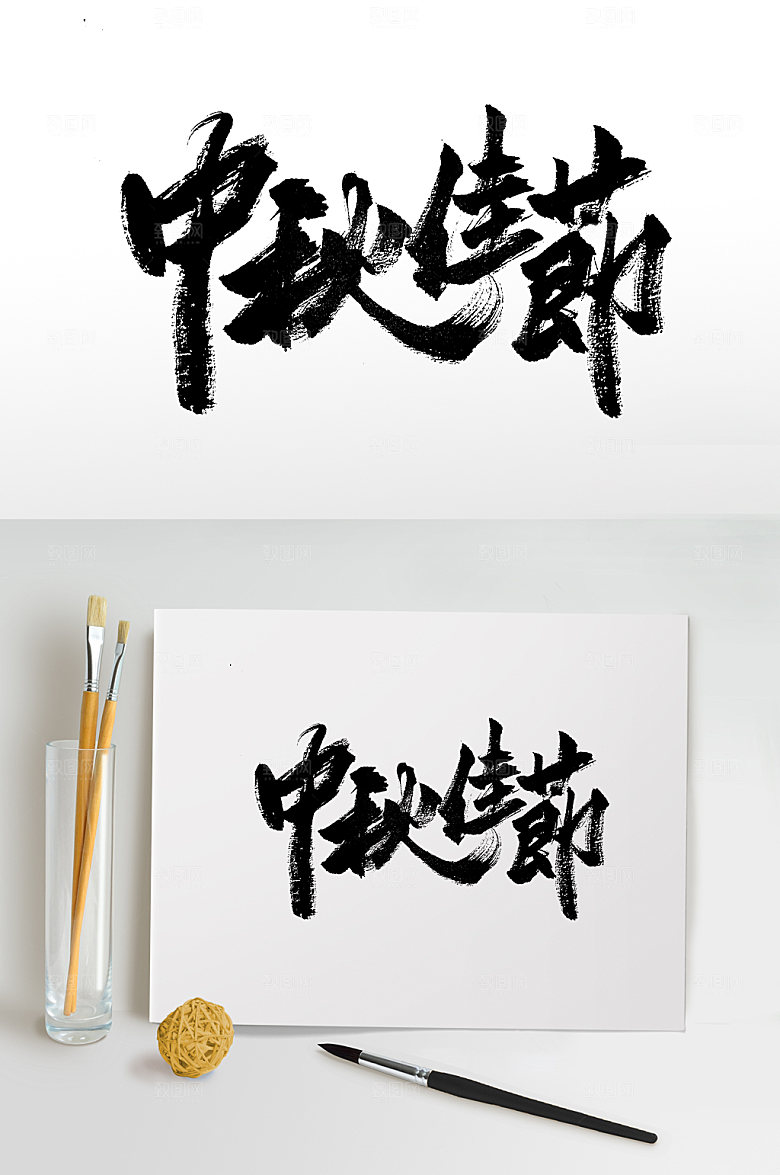 中秋佳節
中秋佳節